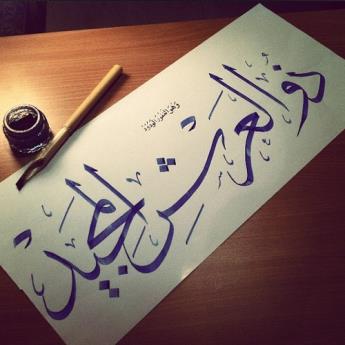 وَهُوَ الْغَفُورُ الْوَدُودُ
ذو العرش المجيد